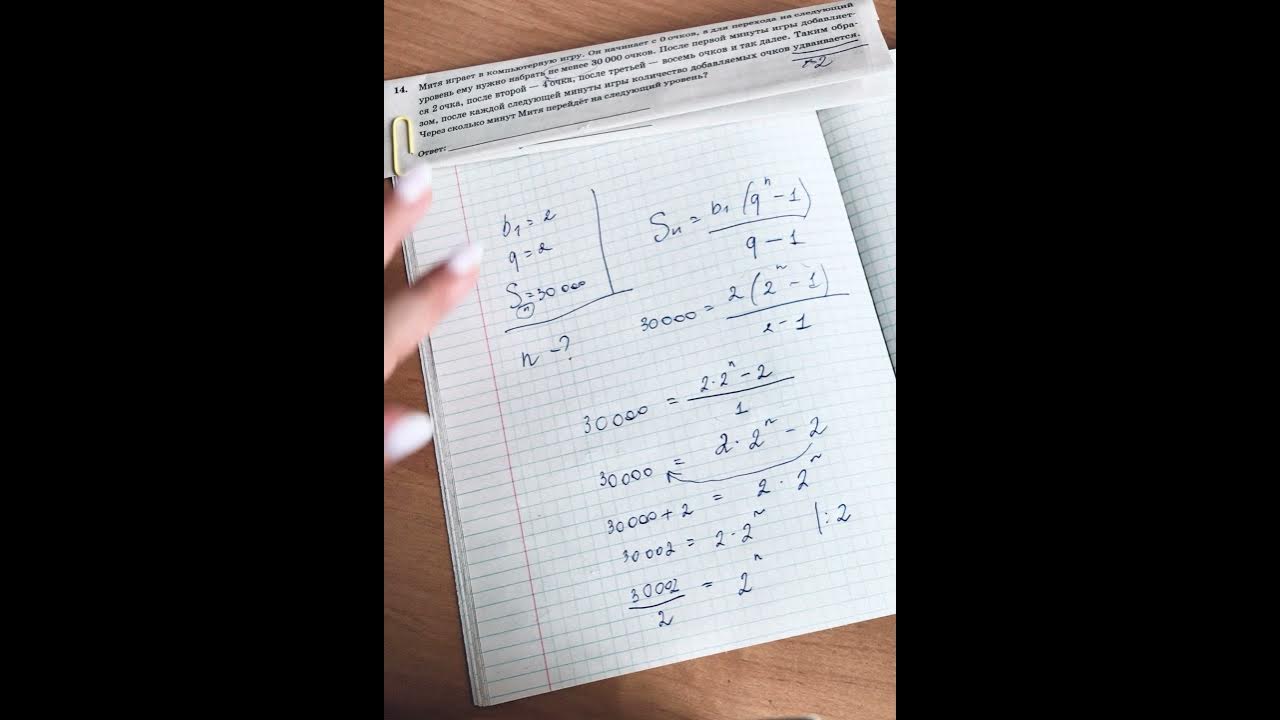 14. Митя играет в компьютерную игру. Он начинает с 0 очков, а для перехода на следующий
уровень ему нужно набрать не менее 30 000 очков. После первой минуты игры добавляет-
ся 2 очка, после второй — 4 очка, после третьей — восемь очков и так далее. Таким обра-
зом, после каждой следующей минуты игры количество добавляемых очков удваивается.
Через сколько минут Митя перейдёт на следующий уровень?
Ответ:
b₁ = 2
q = 2
Sₙ = 30 000
n - ?
Sₙ = b₁ (qⁿ - 1) / q - 1
30000 = 2 (2ⁿ - 1) / 2 - 1
30000 = 2·2ⁿ - 2 / 1
30000 = 2·2ⁿ - 2
30000 + 2 = 2·2ⁿ
30002 = 2·2ⁿ |:2
30002 / 2 = 2ⁿ